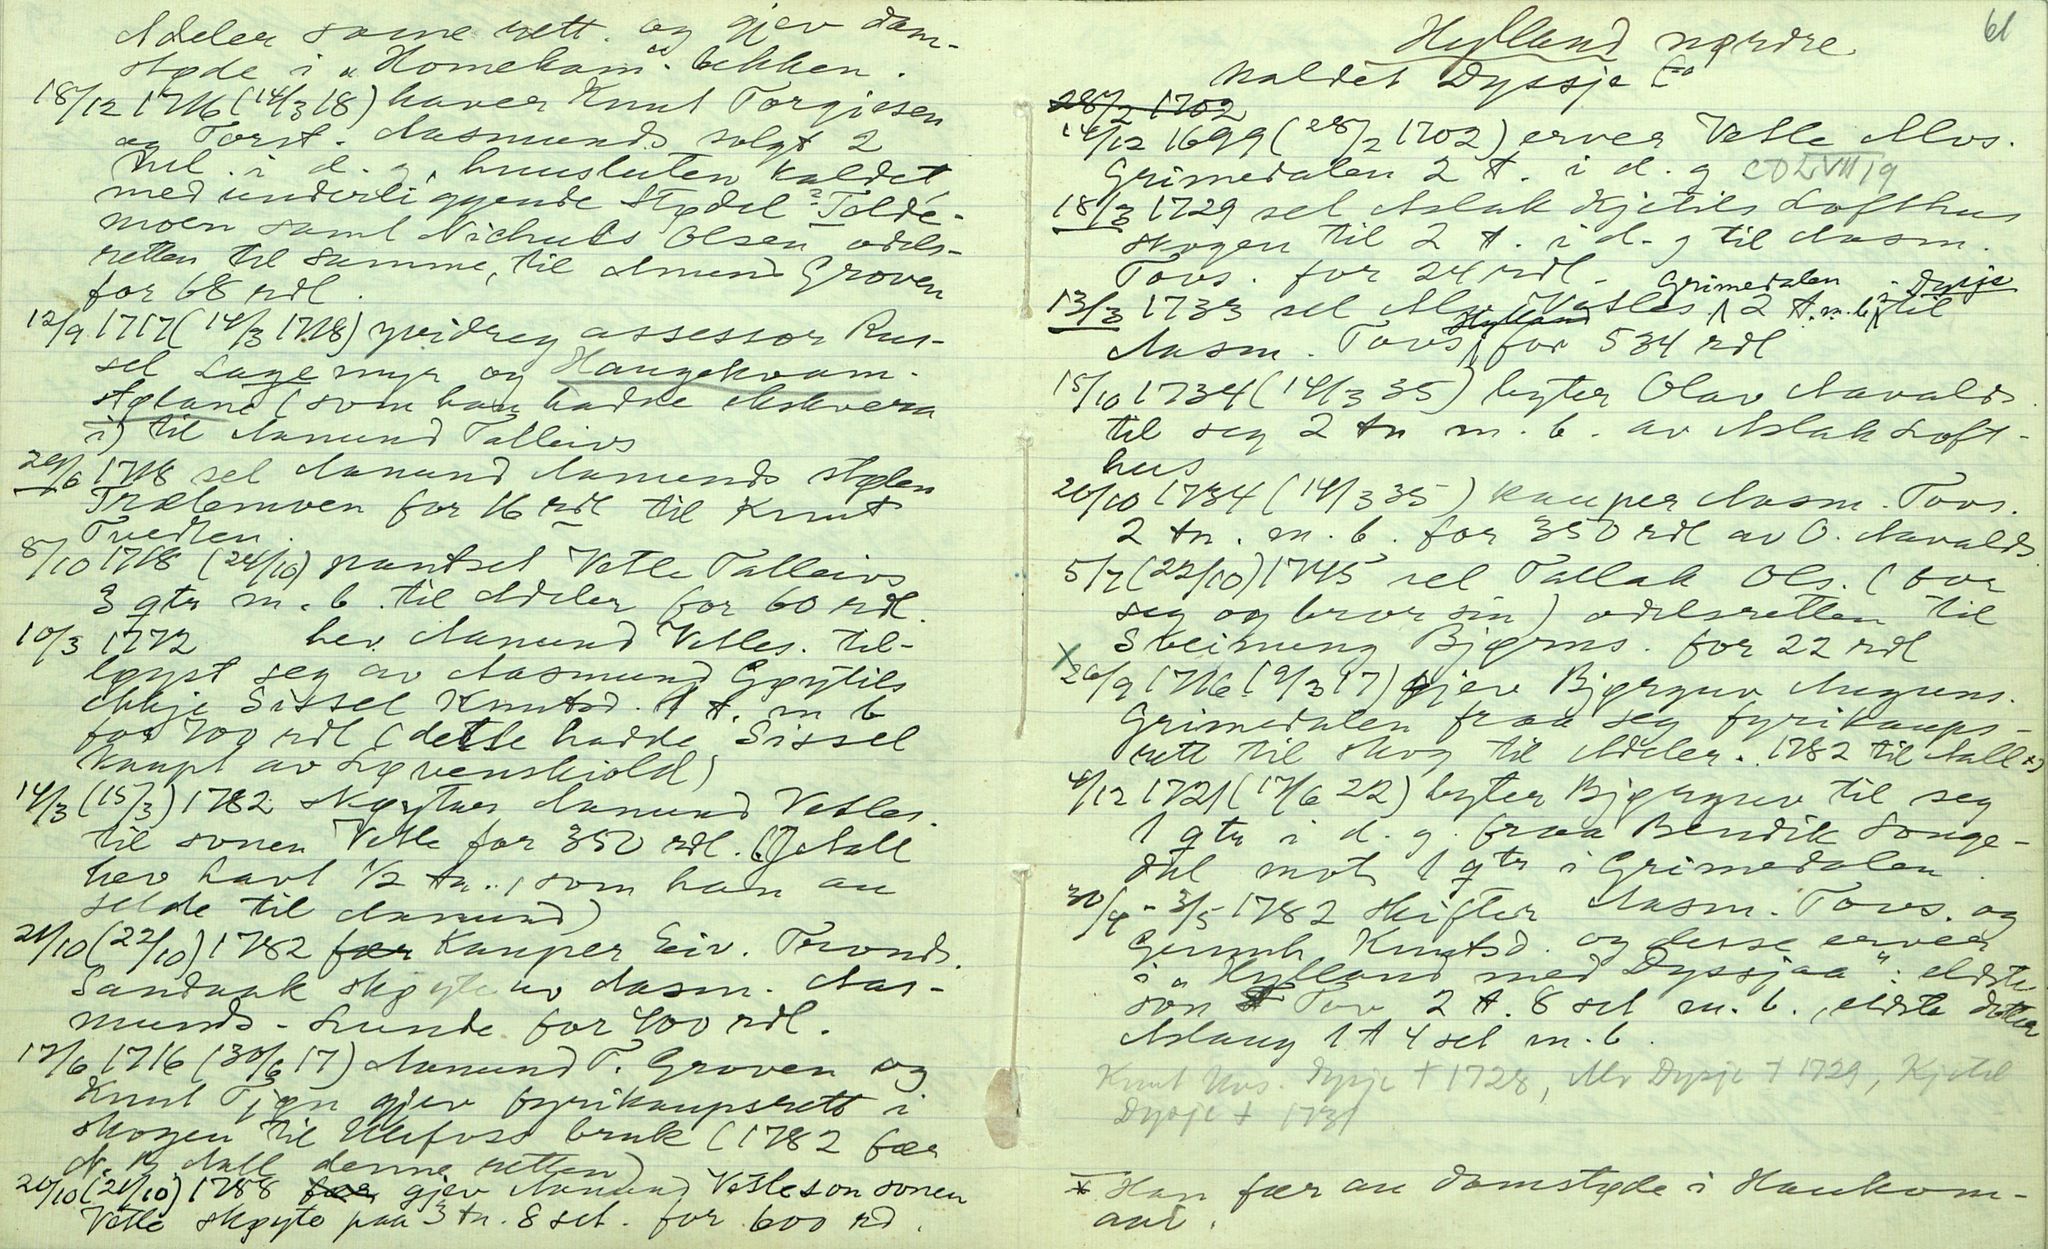 Adeler same rett og gjev dam-
støde i "Homekam"-bekken.
18/12 1716 (14/3 18) haver Knut Torgiesen
og Torst. Aasmunds. solgt 2
hul. i d. g., huusluten kaldet,
med underliggende stødeel "Tolde-
moen samt Nichuls Olsen odels-
retten til samme, til Amund Groven
for 68 rdl.
12/9 1717 (14/3 1718) yvidreg assessor Rus-
sel Lagemyr og Haugekvam-
stølane (som han hadde eksekvera
i) til Aamund Talleivs
20/6 1718 sel Aamund Aamunds stølen
Trælemoen for 16 rdl til Knut
Tvedten.
8/10 1718 (24/10) pantset Vetle Talleivs
3 qtr m. b. til Adeler for 60 rdl.
10/3 1772 hev Aamund Vetles. til-
løyst seg av Aasmund Gøytils
ekkje Sissel Knutsd. 1 t. m b
for 700 rdl (dette hadde Sissel
kaupt av Løvenskiold)
14/3 (15/3) 1782 skøyter Aamund Vetles.
til sonen Vetle for 350 rdl. (J Aall
hev havt 1/2 tn., som han au
selde til Aamund)
21/10 (22/10) 1782 fær Kauper Eiv. Tronds.
Sandaak skøyte av Aasm. Aas-
munds. Lunde for 400 rdl.
17/6 1716 (30/6 17) Aamund T. Groven og
Knut Tjøn gjev fyrikaupsrett i
skogen til Ulefoss bruk (1782 fær
N. B. Aall denne retten)
20/10 (21/10) 1788 fær gjev Aamund Vetleson sonen
Vetle skøyte paa 3 tn. 8 set. for 600 rd.
61
Hylland nørdre
kaldet Dyssje
28/2 1702
14/12 1699 (28/2 1702) erver Vetle Alvs.
Grimedalen 2 t. i d. g
18/3 1729 sel Aslak Kjetils Lofthus
skogen til 2 t. i d. g til Aasm.
Tovs. for 24 rdl.
13/3 1733 sel Alv Vetles. Grimedalen 2 t. m. b. i Dysje til
Aasm. Tovs Hylland for 534 rdl
15/10 1734 (14/3 35) byter Olav Aavalds.
til seg 2 tn m. b. av Aslak Loft-
hus
20/10 1734 (14/3 35) kauper Aasm. Tovs.
2 tn. m. b. for 350 rdl av O. Aavalds
5/7 (22/10) 1745 sel Tallak Ols. (for
seg og bror sin) odelsretten til
Steinung Bjørns. for 22 rdl
x 26/9 1716 (9/3 17) gjev Bjørguv Auguns.
Grimedalen fraa seg fyrikaups-
rett til skog til Adeler. 1782 til Aall x)
4/12 1721 (17/6 22) byter Bjørguv til seg
1 qtr i d. g. fraa Bendik Longe-
dal mot 1 qtr i Grimedalen.
30/4 - 3/5 1782 skifter Aasm. Tovs. og
Gunnh Knutsd. og desse erver
i "Hylland med Dyssjaa": eldste
son Tov 2 t. 8 set m. b., eldste dotter
Aslaug 1 t 4 set m. b.
Knut Alvs. Dysje † 1728, Alv Dysje † 1729, Kjetil
Dysje † 1731
x Han fær au damstøde i Haukom-
aai.